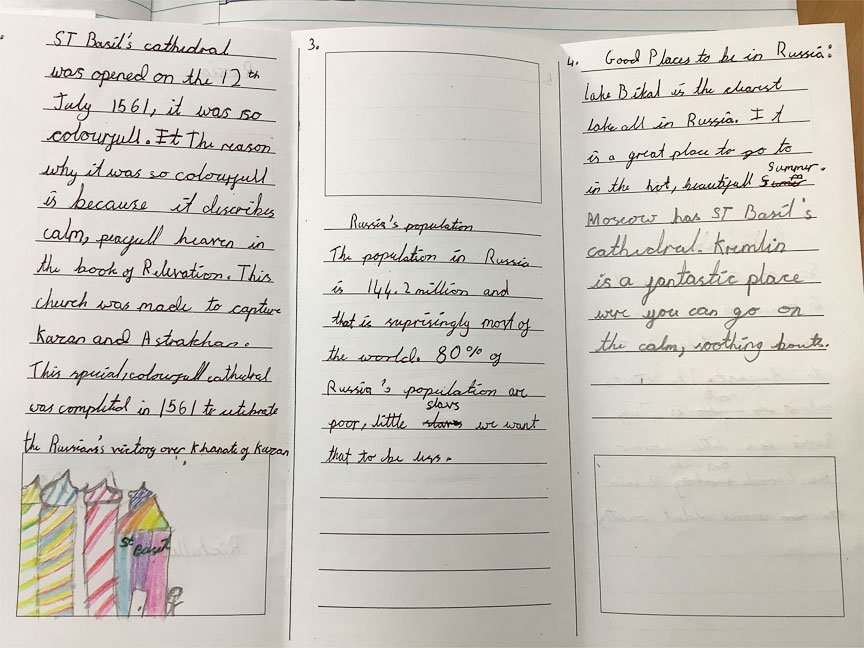 ST Basil's cathedral
was opened on the 12th
July 1561, it was so
colourfull. It The reason
why it was so colourfull
is because it describes
calm, peacfull heaven in
the book of Relevation. This
church was made to capture
Kazan and Astrakhan.
This special, colourfull cathedral
was completed in 1561 to celebrate
the Russians's victory over Khanate of Kazan
St Basil
3.
Russia's population
The population in Russia
is 144.2 million and
that is suprisingly most of
the world. 80% of
Russia's population are
slavs
poor, little slaves we want
that to be less.
4. Good Places to be in Russia:
lake Bikal is the clearest
lake all in Russia. It
is a great place to go to
Summer.
in the hot, beautifull
Moscow has ST Basil's
cathedral. Kremlin
is a fantastic place
were you can go on
the calm, soothing boats.